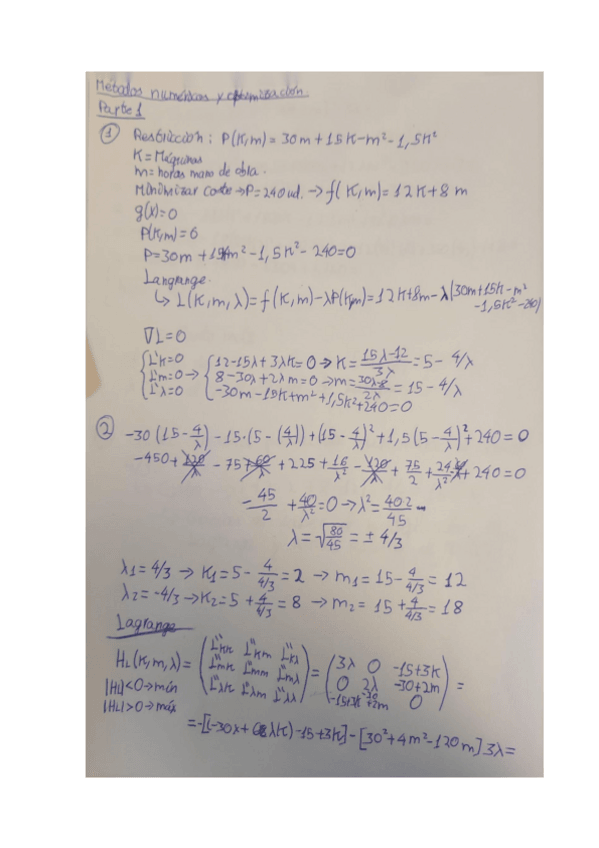 Métodos numéricos y optimización.
Parte 1
① Restricción: P(K,m) = 30m + 15K - m² - 1,5K²
K = Máquinas
m = horas mano de obra.
Minimizar coste → P = 240 ud. → f(K,m) = 12K + 8m
g(x) = 0
P(K,m) = 0
P = 30m + 15K - m² - 1,5K² - 240 = 0
Langrange.
↳ L(K,m,λ) = f(K,m) - λP(K,m) = 12K + 8m - λ(30m + 15K - m²
- 1,5K² - 240)
∇L = 0
L'k = 0 → 12 - 15λ + 3λK = 0 → K = (15λ - 12)/3λ = 5 - 4/λ
L'm = 0 → 8 - 30λ + 2λm = 0 → m = (30λ - 8)/2λ = 15 - 4/λ
L'λ = 0 -30m - 15K + m² + 1,5K² + 240 = 0
② -30(15 - 4/λ) - 15·(5 - (4/λ)) + (15 - 4/λ)² + 1,5(5 - 4/λ)² + 240 = 0
-450 + 120/λ - 75 + 60/λ + 225 + 16/λ² - 120/λ + 75/2 + 24/λ² + 240 = 0
-45/2 + 40/λ² = 0 → λ² = 40·2/45
λ = √(80/45) = ± 4/3
λ1 = 4/3 → K1 = 5 - 4/(4/3) = 2 → m1 = 15 - 4/(4/3) = 12
λ2 = -4/3 → K2 = 5 + 4/(4/3) = 8 → m2 = 15 + 4/(4/3) = 18
Lagrange
HL(K,m,λ) = (L''kk L''km L''kλ = (3λ 0 -15+3K
|HL|<0 → mín L''mk L''mm L''mλ 0 2λ -30+2m =
|HL|>0 → máx L''λk L''λm L''λλ) -15+3K -30+2m 0)
= -[(-30λ + 6λK) -15+3K] - [30² + 4m² - 120m] 3λ =